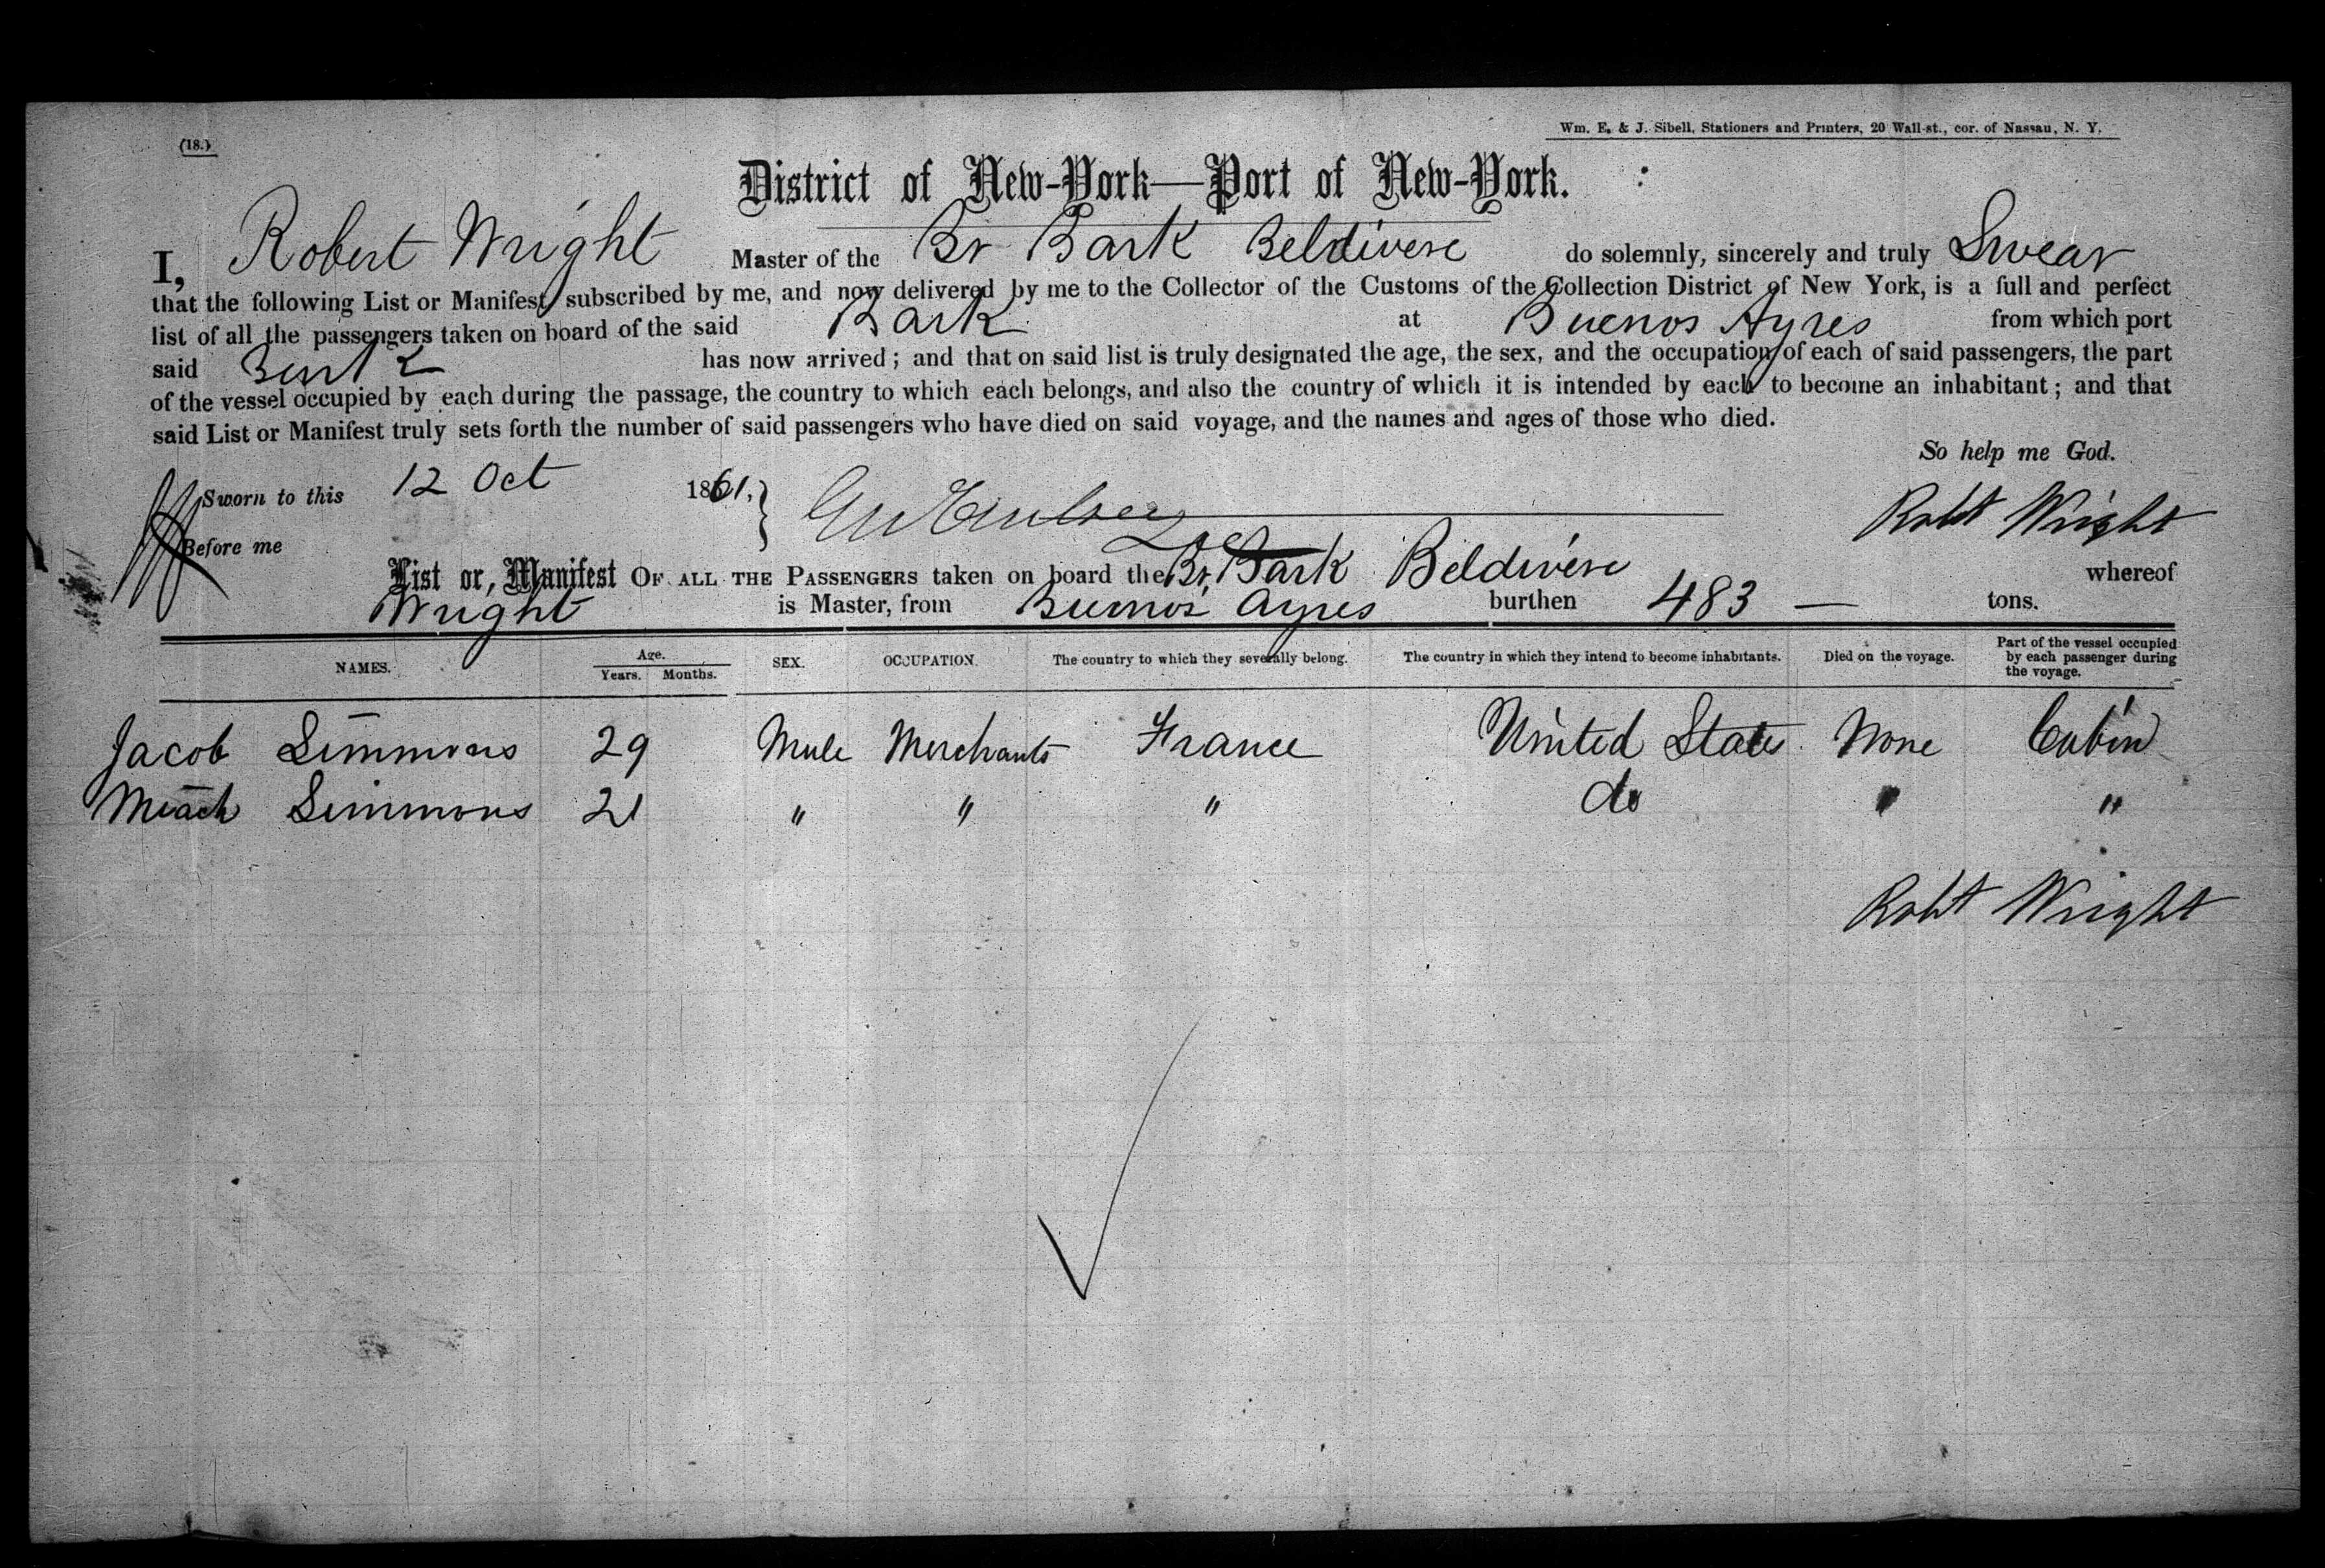 (18.)
Wm. E. & J. Sibell, Stationers and Printers, 20 Wall-st., cor. of Nassau, N. Y.
District of New-York—Port of New-York.
I, Robert Wright Master of the Br Bark Beldivere do solemnly, sincerely and truly Swear
that the following List or Manifest, subscribed by me, and now delivered by me to the Collector of the Customs of the Collection District of New York, is a full and perfect
list of all the passengers taken on board of the said Bark at Buenos Ayres from which port
said Bark has now arrived; and that on said list is truly designated the age, the sex, and the occupation of each of said passengers, the part
of the vessel occupied by each during the passage, the country to which each belongs, and also the country of which it is intended by each to become an inhabitant; and that
said List or Manifest truly sets forth the number of said passengers who have died on said voyage, and the names and ages of those who died.
So help me God.
Sworn to this 12 Oct 1861,
Robt Wright
Before me
List or, Manifest OF ALL THE PASSENGERS taken on board the Br. Bark Beldivere whereof
Wright is Master, from Buenos Ayres burthen 483 — tons.
NAMES. Age. Years. Months. SEX. OCCUPATION. The country to which they severally belong. The country in which they intend to become inhabitants. Died on the voyage. Part of the vessel occupied by each passenger during the voyage.
Jacob Simmons 29 Male Merchants France United States None Cabin
Simmons 21 " " " do " "
Robt Wright